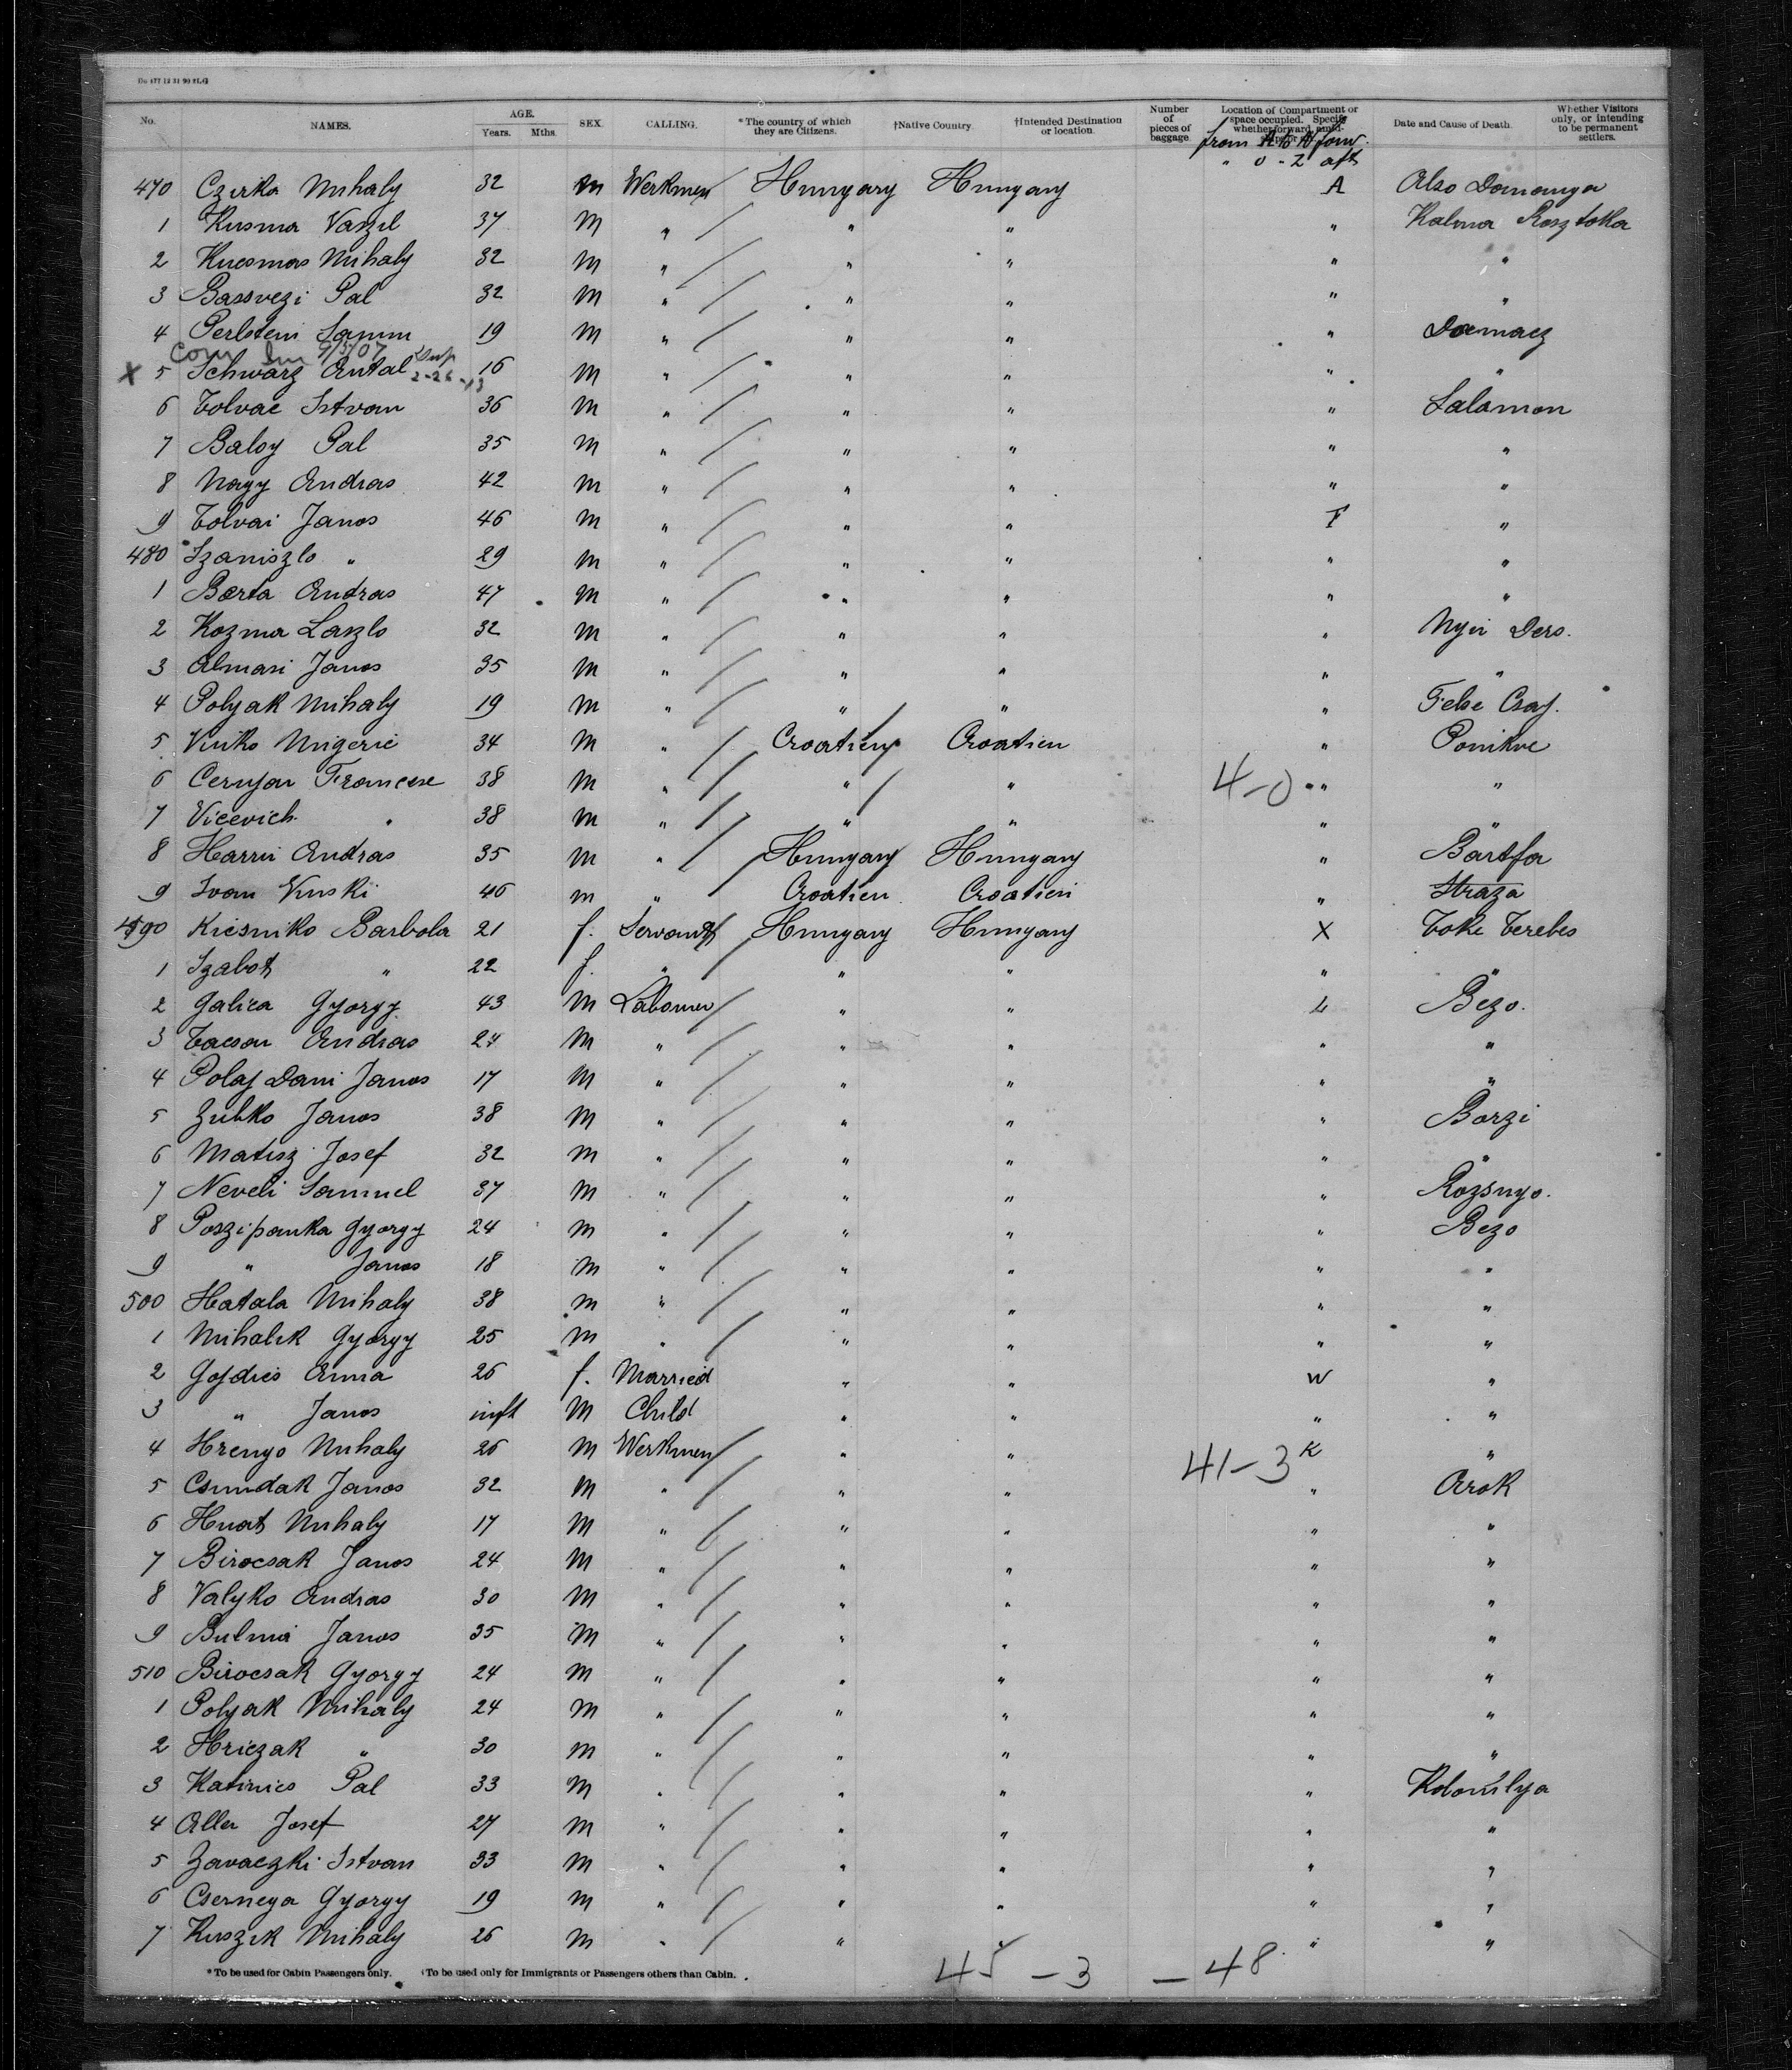 No. NAMES. AGE. Years. Mths. SEX. CALLING. *The country of which they are Citizens. †Native Country. †Intended Destination or location. Number of pieces of baggage Location of Compartment or space occupied. Specify whether forward, amid- Date and Cause of Death. Whether Visitors only, or intending to be permanent settlers.
from A to N forw.
" O - Z aft
470 Czirka Mihaly 32 m Werkmen Hungary Hungary A Also Domonya
1 Kusma Vaszil 37 M " " " " Kalma Rosztoka
2 Kucsmas Mihaly 32 M " " " " "
3 Bassvezi Pal 32 M " " " " "
4 Perlstein Samm 19 M " " " " Doemaez
X 5 Schwarz Antal 16 M " " " " "
6 Tolvae Istvan 36 M " " " " Salamon
7 Baloy Pal 35 M " " " " "
8 Nagy Andras 42 M " " " " "
9 Tolvai Janos 46 M " " " F "
480 Szaniszlo " 29 M " " " " "
1 Barta Andras 47 M " " " " "
2 Kozma Laszlo 32 M " " " " Nyir Ders.
3 Almasi Janos 35 M " " " " "
4 Polyak Mihaly 19 M " " " " Felse Csaj.
5 Vinko Migeric 34 M " Croatien Croatien " Ponikve
6 Cernjar Francese 38 M " " " 4-0 " "
7 Vicevich " 38 M " " " " "
8 Harrii Andras 35 M " Hungary Hungary " Bartfa
9 Ivan Vuski 46 m " Croatien Croatien " Straza
490 Kriesniko Barbola 21 f. Servants Hungary Hungary X Toke Terebes
1 Szabot " 22 f. " " " " "
2 Galica Gyorgy 43 M Laborner " " L Bezo.
3 Tacsar Andras 24 M " " " " "
4 Polaj Dani Janos 17 M " " " " "
5 Zubko Janos 38 M " " " " Barzi
6 Matisz Josef 32 M " " " " "
7 Neveli Samuel 37 M " " " " Rozsnyo.
8 Poszipanka Gyorgy 24 M " " " " Bezo
9 " Janos 18 M " " " " "
500 Hatala Mihaly 38 M " " " " "
1 Mihalik Gyorgy 25 M " " " " "
2 Gojdics Anna 26 f. Married " " W "
3 " Janos inft M Child " " " "
4 Hrenyo Mihaly 26 M Werkmen " " 41-3 K "
5 Csundak Janos 32 M " " " " Arok
6 Huat Mihaly 17 M " " " " "
7 Birocsak Janos 24 M " " " " "
8 Valyko Andras 30 M " " " " "
9 Bulma Janos 35 M " " " " "
510 Birocsak Gyorgy 24 M " " " " "
1 Polyak Mihaly 24 M " " " " "
2 Hriczak " 30 M " " " " "
3 Katinics Pal 33 M " " " " Kolomilya
4 Aller Josef 27 M " " " " "
5 Zavaczki Istvan 33 M " " " " "
6 Cserneya Gyorgy 19 M " " " " "
7 Kuszik Mihaly 26 M " " " " "
*To be used for Cabin Passengers only. †To be used only for Immigrants or Passengers others than Cabin.
45 - 3 - 48